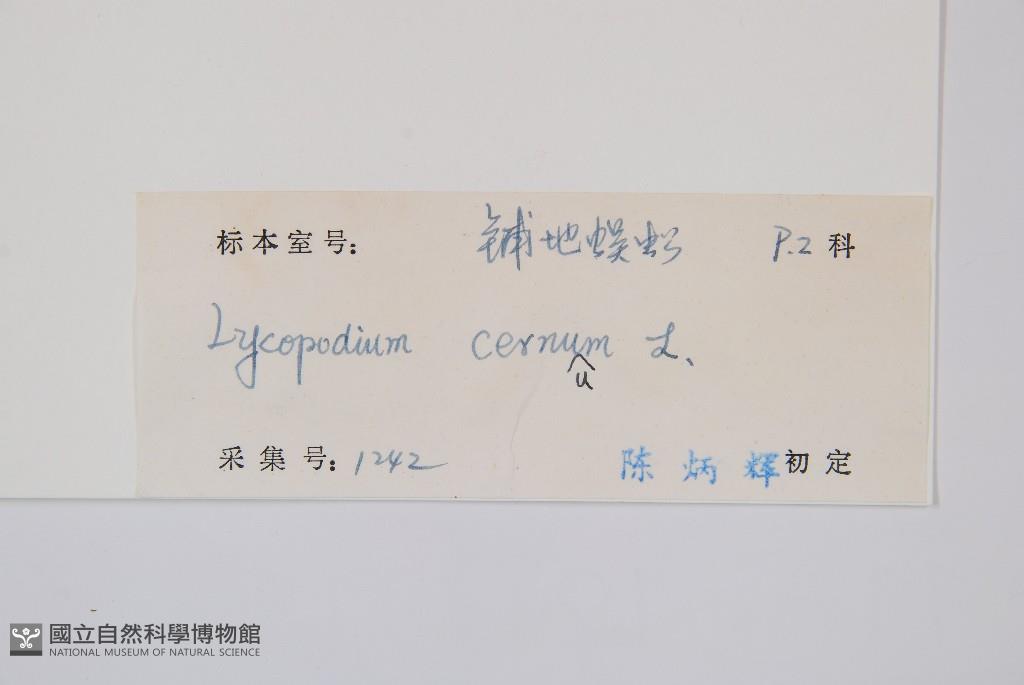 标本室号: 铺地蜈蚣 P.2 科
Lycopodium cernum L.
u
采集号: 1242 陈炳辉初定
國立自然科學博物館
NATIONAL MUSEUM OF NATURAL SCIENCE